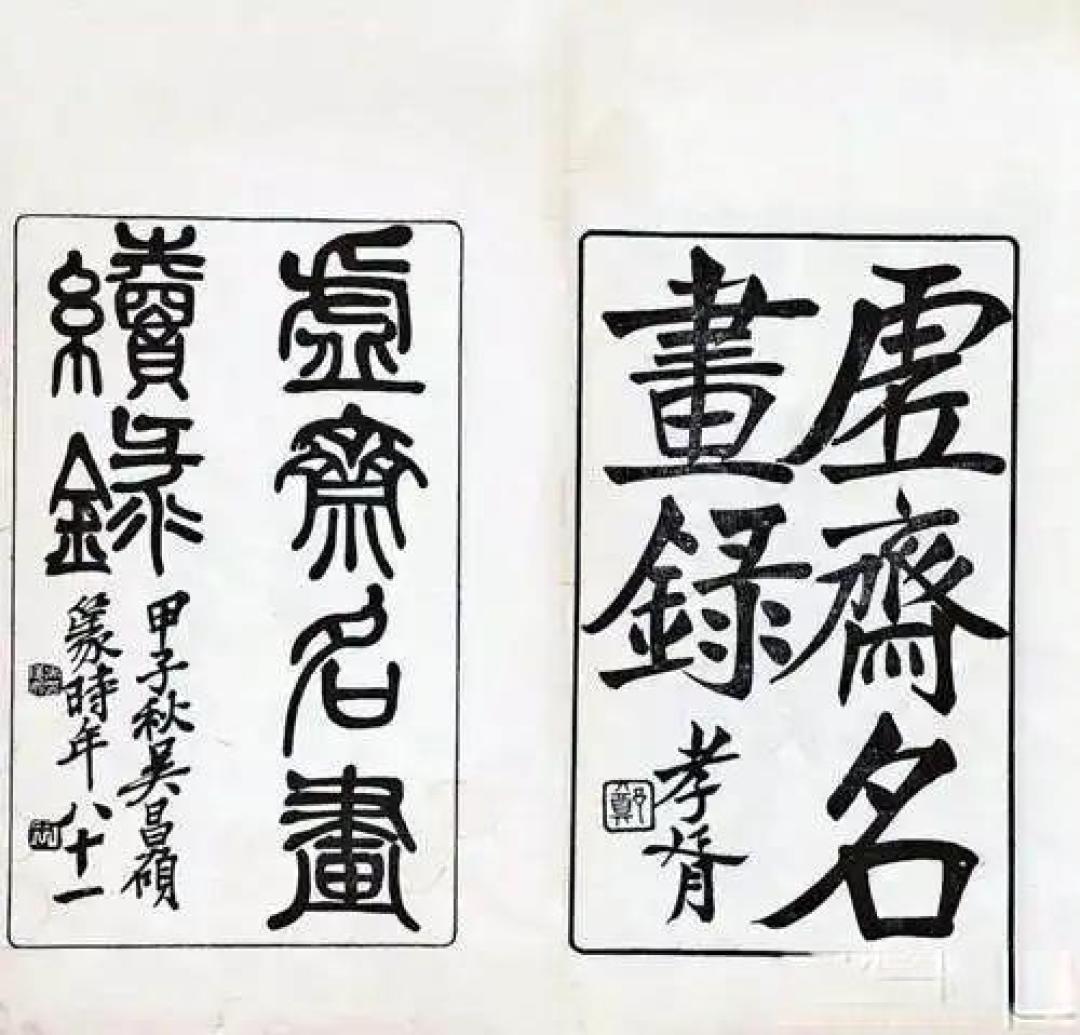 虛齋名
畫錄
孝胥
鄭
虛齋名畫
續錄
甲子秋吳昌碩
篆時年八十一